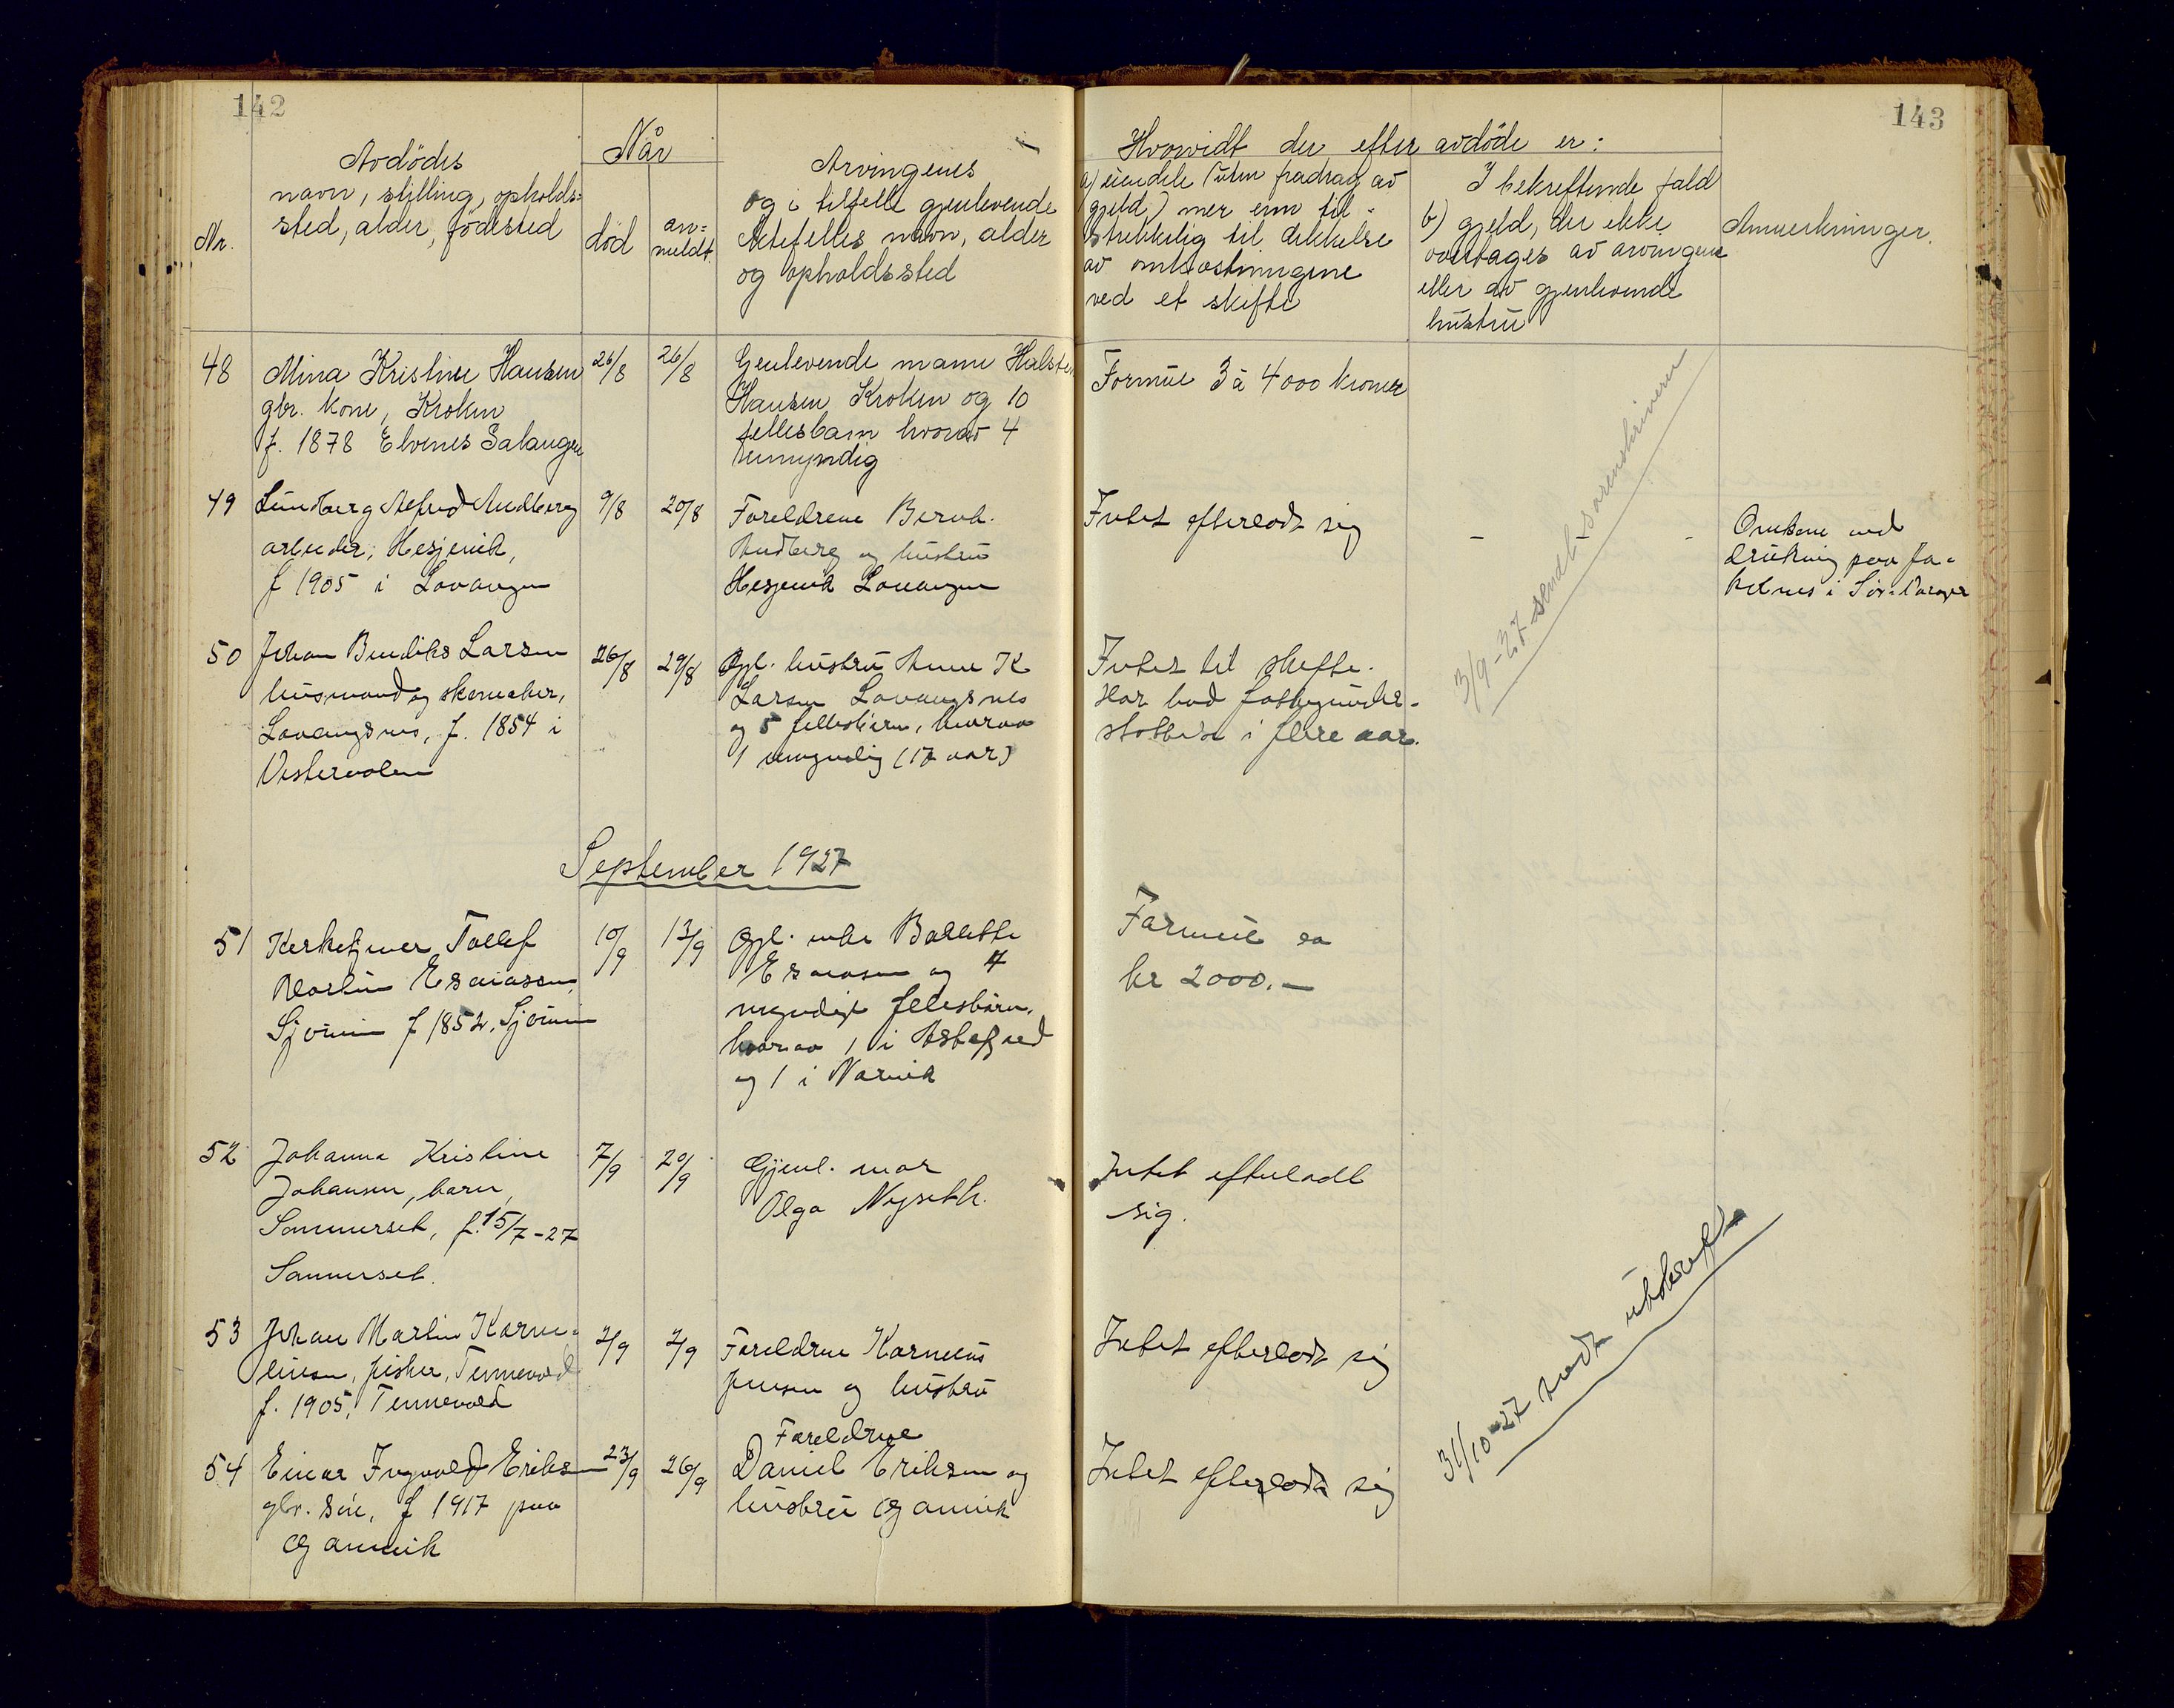 142
143
Avdödes
navn, stilling, opholds-
sted, alder, födested
Nr.
Når
död
an-
meldt.
Arvingenes
og i tilfelle gjenlevende
Ektefelles navn, alder
og opholdssted
Hvorvidt der efter avdöde er:
a) eiendele (uten fradrag av
gjeld) mer enn til-
strekkelig til dekkelse
av omkostningene
ved et skifte
I bekreftende fald
b) gjeld, der ikke
overtages av arvingene
eller av gjenlevende
hustru
Anmerkninger.
48
Mina Kristine Hansen
gbr. kone, Kroken
f. 1878 Elvenes Salangen
26/8
26/8
Genlevende mann Halsten
Hansen Kroken og 10
fellesbarn hvorav 4
umyndig
Formue 3 à 4000 kroner
49
Lundberg Alfred Andberg
arbeider, Hesjevik,
f 1905 i Lavangen
9/8
20/8
Foreldrene Bernh.
Andberg og hustru
Hesjevik Lavangen
Intet efterladt sig
-
-
-
Omkom ved
drukning paa Ja-
kobnes i Sör-Varanger
50
Johan Bendiks Larsen
husmand og skomaker,
Lavangsnes, f. 1854 i
Vesteraalen
26/8
29/8
Gjl. hustru Anne K
Larsen Lavangsnes
og 5 fellesbarn, hvorav
1 umyndig (17 aar)
Intet til skifte.
Har havd fattigunder-
stöttelse i flere aar.
3/9-27 sendt sorenskriveren
September 1927
51
Kirketjener Tollef
Martin Esaiassen,
Sjövein f 1852, Sjövein
10/9
13/9
Gjl. enke Bollette
Esaiassen og 4
myndige fellesbarn,
hvorav 1 i Astafjord
og 1 i Narvik
Formue ca
kr 2000.-
52
Johanna Kristine
Johansen, barn,
Sommerset, f. 15/7-27
Sommerset.
7/9
20/9
Gjenl. mor
Olga Nyseth.
Intet efterladt
sig.
53
Johan Martin Korne-
liusen, fisker, Tennevold
f. 1905, Tennevold
2/9
2/9
Foreldrene Kornelius
Jensen og hustru
Intet efterladt sig
54
Einar Ingvald Eriksen
gbr. sön, f 1917 paa
Gamvik
23/9
26/9
Foreldrene
Daniel Eriksen og
hustru Gamvik
Intet efterladt sig
31/10-27 sendt utskrift